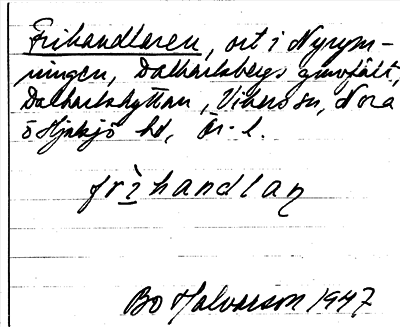 Frihandlaren, ort i Nyrym-
ningen, Dalkarlsbergs gruvfält,
Dalkarlshyttan, Vikers sn, Nora
o Hjulsjö hd, Ör. l.
frìhandlaɳ
Bo Halvarson 1947